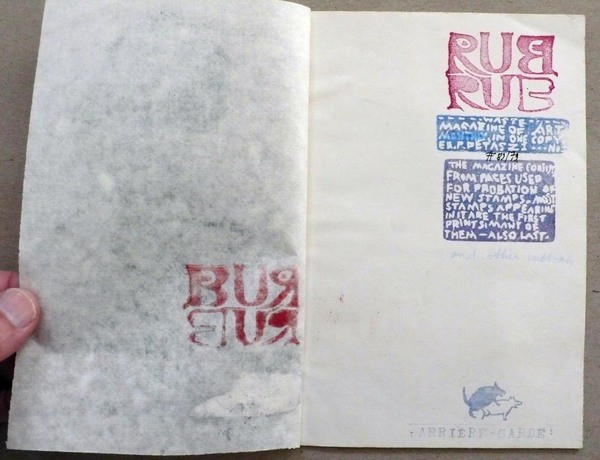 BUR
RUB
RUB
RUB
WASTE
MAGAZINE OF ART
MONTHLY, IN ONE COPY
ER.P. PETASZ
THE MAGAZINE CONSIST
FROM PAGES USED
FOR PROBATION OF
NEW STAMPS. MOST
STAMPS APPEARING
IN IT ARE THE FIRST
PRINTS; MANY OF
THEM - ALSO, LAST.
and other
ARRIERE-GARDE